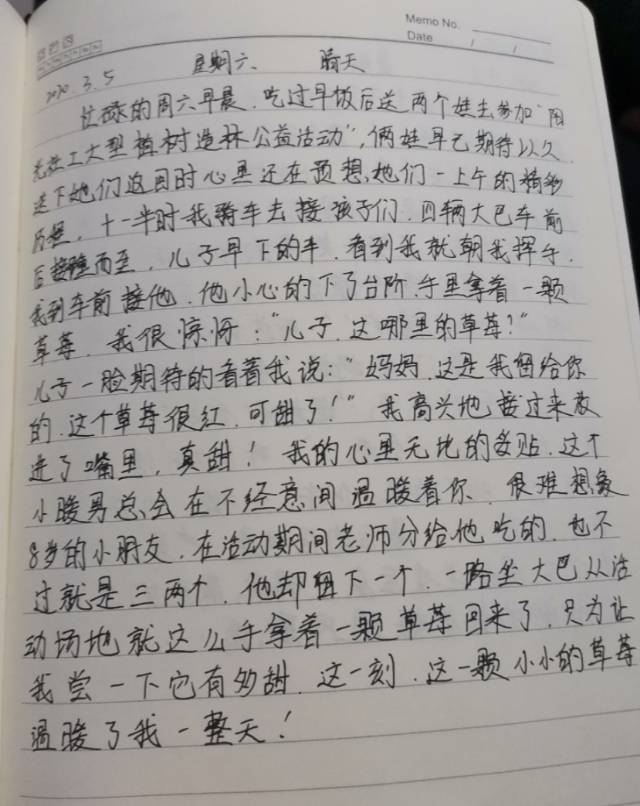 Memo No.
Date / /
2020.3.5 星期六、 晴天
忙碌的周六早晨.吃过早饭后送两个娃去参加"阳
光社工大型植树造林公益活动",俩娃早已期待以久.
送下她们返回时心里还在预想,她们一上午的精彩
历程,十一半时我骑车去接孩子们.四辆大巴车前
后接踵而至,儿子早下的车.看到我就朝我挥手.
我到车前接他.他小心的下了台阶.手里拿着一颗
草莓.我很惊讶:"儿子.这哪里的草莓?"
儿子一脸期待的看着我说:"妈妈.这是我留给你
的.这个草莓很红.可甜了!"我高兴地接过来放
进了嘴里,真甜!我的心里无比的妥贴.这个
小暖男总会在不经意间温暖着你.很难想象
8岁的小朋友.在活动期间老师分给他吃的.也不
过就是三两个.他却留下一个.一路坐大巴从活
动场地就这么手拿着一颗草莓回来了.只为让
我尝一下它有多甜.这一刻.这一颗小小的草莓
温暖了我一整天!